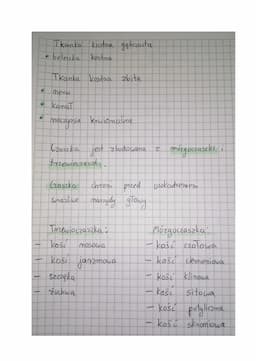 Tkanka kostna gąbczasta
• beleczka kostna
Tkanka kostna zbita
• nerw
• kanał
• naczynia krwionośne
Czaszka jest zbudowana z mózgoczaszki i
trzewioczaszki.
Czaszka chroni przed uszkodzeniem
wrażliwe narządy głowy.
Trzewioczaszka: Mózgoczaszka:
– kość nosowa – kość czołowa
– kość jarzmowa – kość ciemieniowa
– szczęka – kość klinowa
– żuchwa – kość sitowa
– kość potyliczna
– kość skroniowa